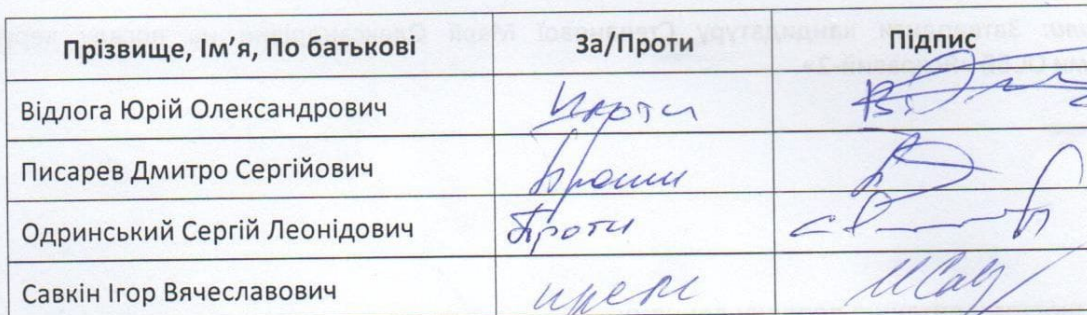 Прізвище, Ім’я, По батькові За/Проти Підпис
Відлога Юрій Олександрович Проти
Писарев Дмитро Сергійович Проти
Одринський Сергій Леонідович Проти
Савкін Ігор Вячеславович